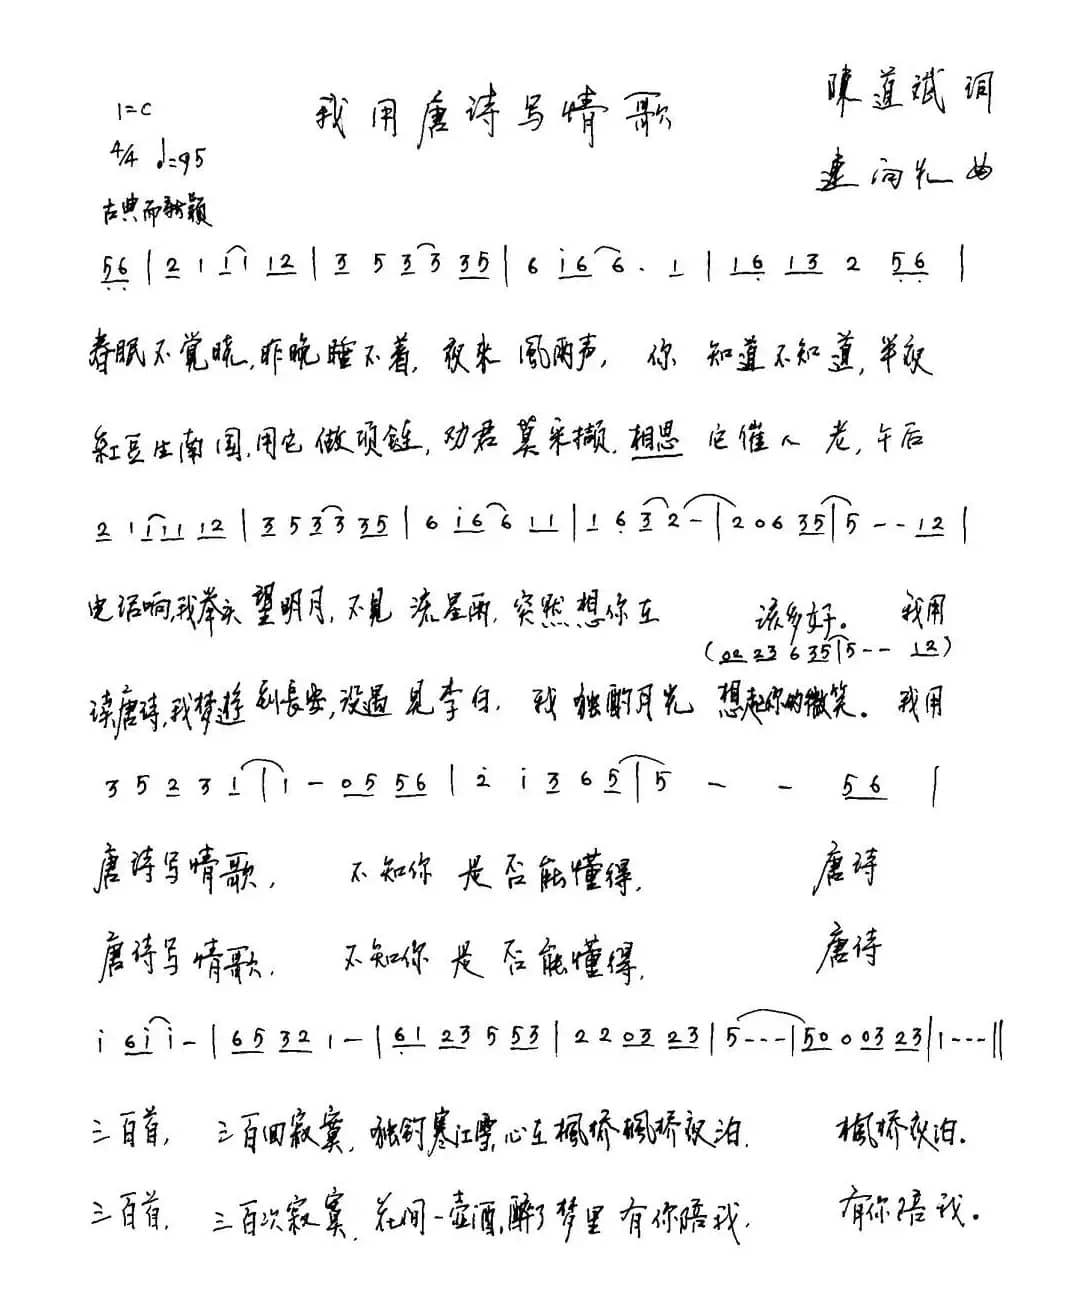 1=C
我用唐诗写情歌
陳道斌 词
4/4 ♩=95
连向先 曲
古典而新颖
56 | 2 1 1 1 12 | 3 5 3 3 35 | 6 i6 6. 1 | 16 13 2 56 |
春眠不觉晓,昨晚睡不着,夜来風雨声, 你 知道不知道,半夜
紅豆生南国,用它做项链,劝君莫采撷,相思 它催人老,午后
2 1 1 1 1 12 | 3 5 3 3 35 | 6 i6 6 11 | 1 6 3 2 - | 2 0 6 35 | 5 - - 12 |
电话响,我举头望明月,不見流星雨,突然想你在 该多好。 我用
(02 23 6 35 | 5 - - 12)
读唐诗,我梦遊到長安,没遇見李白,我独酌月光 想起你的微笑。 我用
3 5 2 3 1 | 1 - 05 56 | 2 i 3 6 5 | 5 - - 56 |
唐诗写情歌, 不知你是否能懂得, 唐诗
唐诗写情歌, 不知你是否能懂得, 唐诗
i 6i i - | 65 32 1 - | 61 23 5 53 | 2 2 03 23 | 5 - - - | 50 0 03 23 | 1 - - - ‖
三百首, 三百回寂寞,独钓寒江雪,心在楓桥楓桥夜泊. 楓桥夜泊.
三百首, 三百次寂寞,花间一壶酒,醉了梦里有你陪我. 有你陪我。